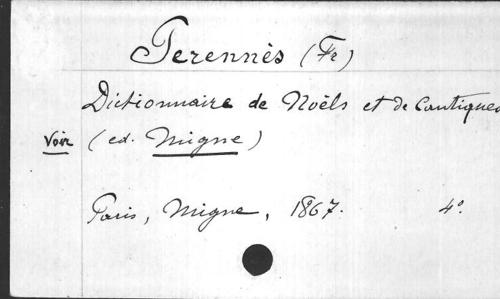 Perennès (Fr)
Dictionnaire de Noëls et de Cantiques
voir (ed. Migne)
Paris, Migne, 1867. 4°